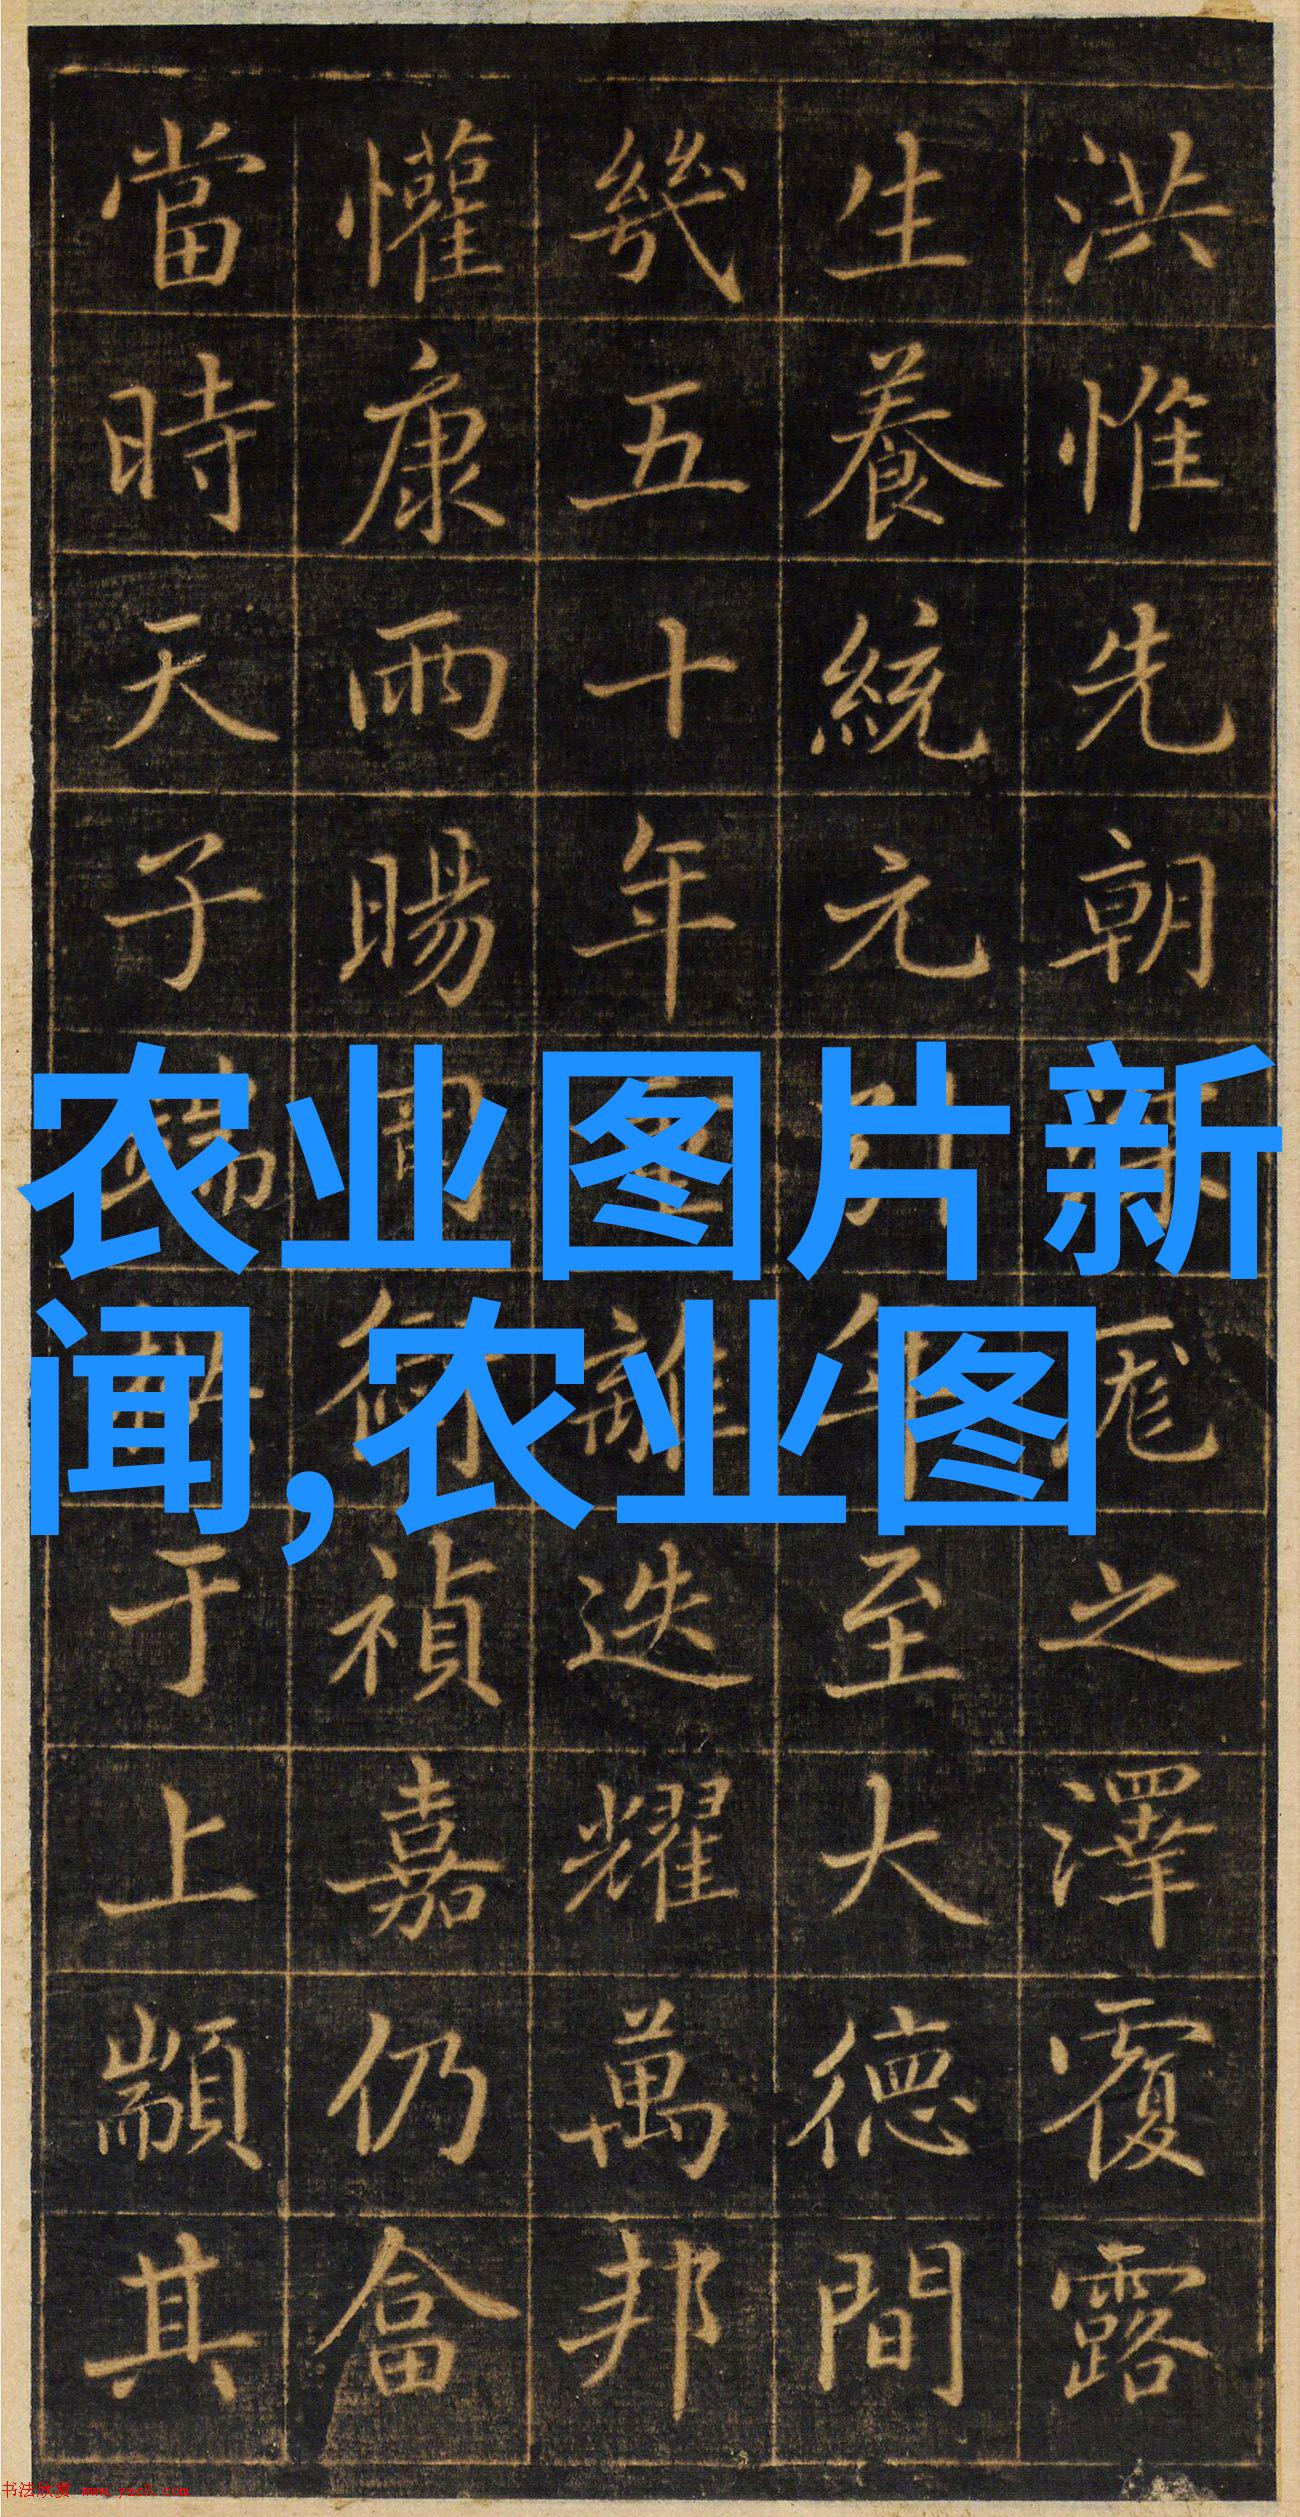 洪惟先朝厖之澤覆露
生養統元引年至大德間
幾五十年重離迭耀萬邦
懽康雨暘禎嘉仍畣
當時天子端拱于上顒其
农业图片新
闻,农业图
书法欣赏 www.yac8.com